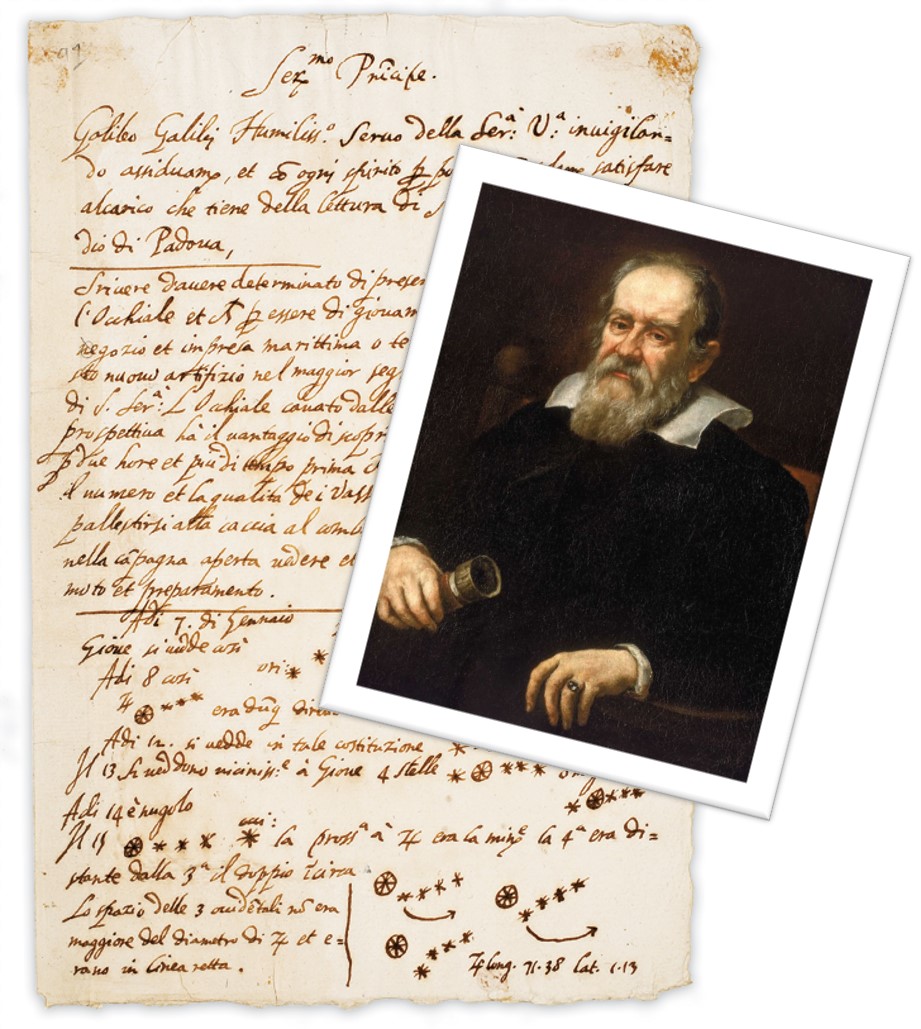 91
Ser.mo Prīcipe.
Galileo Galilei Humiliss.o Servo della Ser.a V.a invigilan=
do assiduam.e, et cō ogni spirito satisfare
alcarico che tiene della lettura di
dio di Padova,
Scrivere davere determinato di presen
l'Occhiale et essere di giovam
negozio et impresa marittima o te
sto nuovo artifizio nel maggior seg
di S. Ser.a L'Occhiale cavato dalle
prospettiva hà il vantaggio di scopri
p due hore et più di tempo prima
il numero et la qualità dei Vass
pallestirsi alla caccia al comb
nella cāpagna aperta vedere et
moto et preparamento.
Adi 7. di Gennaio
Giove si vedde così
Adi 8 così ori:
♃ era dūq diret
Adi 12. si vedde in tale costituzione
Il 13 si veddono vicinis.e à Giove 4 stelle
Adi 14 è nugolo
Il 15 la pross.a à ♃ era la min.e la 4.a era di=
stante dalla 3.a il doppio īcirca
Lo spazio delle 3 occidētali nō era
maggiore del diametro di ♃ et e=
rano in linea retta.
♃ long. 71.38 lat. 1.13